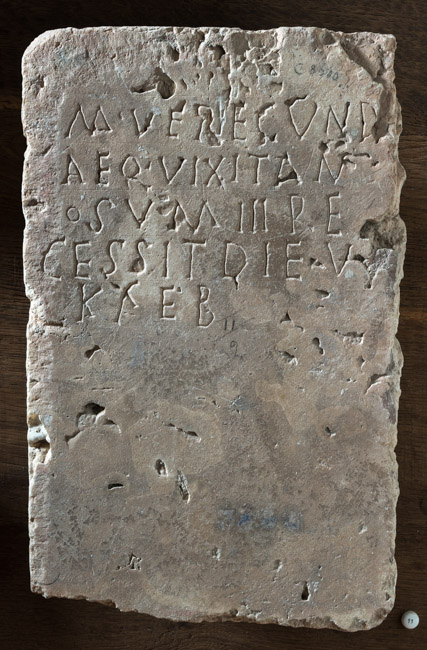 M·VERECVND
AEQVIXITAN
OSVMIIIRE
CESSITDIE·V
KFEB